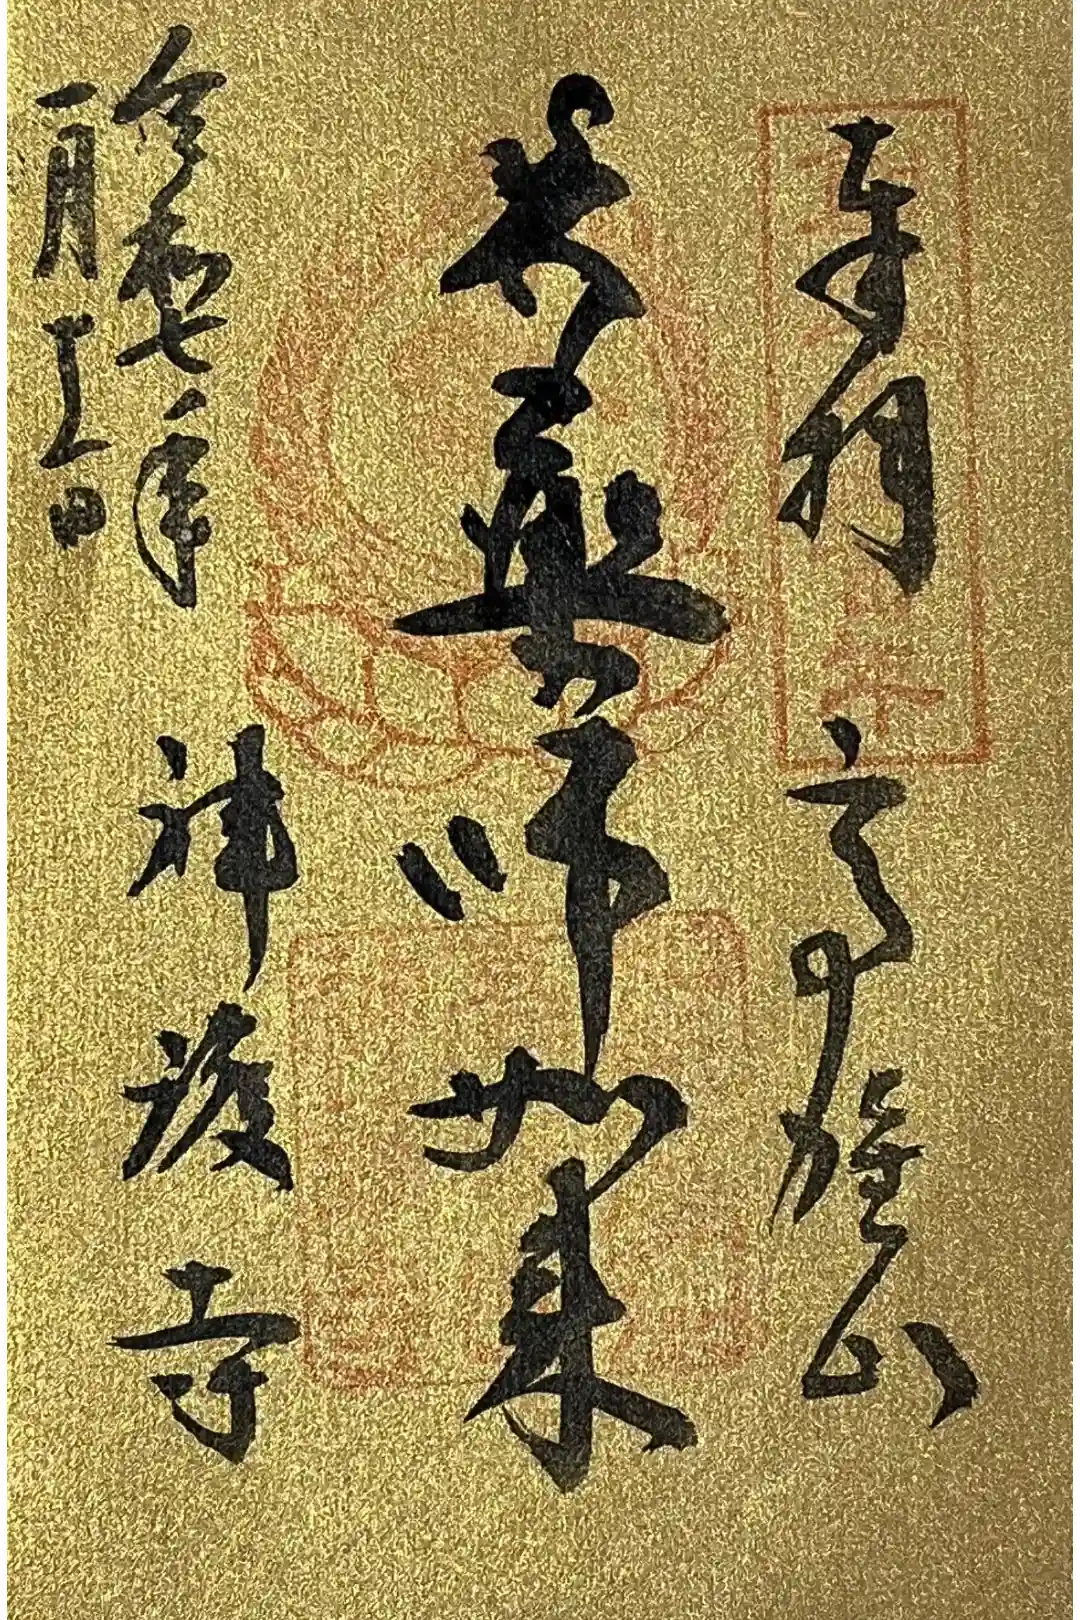 奉拝 高雄山
薬師如来
令和七年 神護寺
一月 日